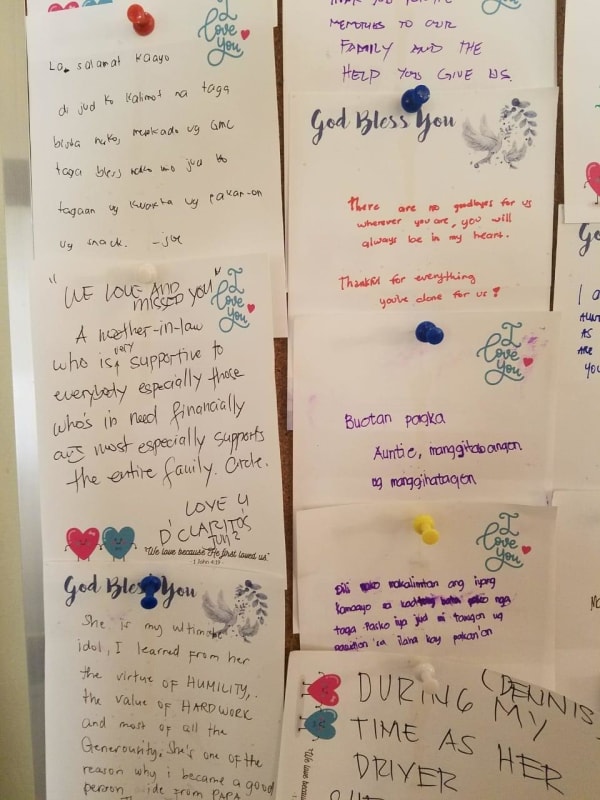 I
Love
You
La, salamat kaayo
di jud ko kalimot na taga
bisita nako, merkado ug GMC
taga bless nako mo jud ko
tagaan ug kwarta ug pakan-on
ug snack. -joe
"WE LOVE AND MISSED YOU"
I
Love
You
A mother-in-law
who is very supportive to
everybody especially those
who's in need financially
and most especially supports
the entire family. Circle.
LOVE U
D' CLARITO'S
"We love because He first loved us"
1 John 4:19
God Bless You
She is my ultimate
idol, I learned from her
the virtue of HUMILITY,
the value of HARDWORK
and most of all the
Generousity. She's one of the
reason why i became a good
person side from PAPA
MEMORIES TO OUR
FAMILY AND THE
HELP YOU GIVE US.
God Bless You
There are no goodbyes for us
wherever you are, you will
always be in my heart.
Thankful for everything
you've done for us!
I
Love
You
Buotan pagka
Auntie, manggitabangon
ug manggihatagon
I
Love
You
Dili nakalimtan ang iyang
kamaayo sa nga
taga Pasko iya jud mi tawgon ug
sa ilaha kay pakan'on
(DENNIS)
DURING MY
TIME AS HER
DRIVER
"We love because
I a
AUNT
AS
ARE
YOU